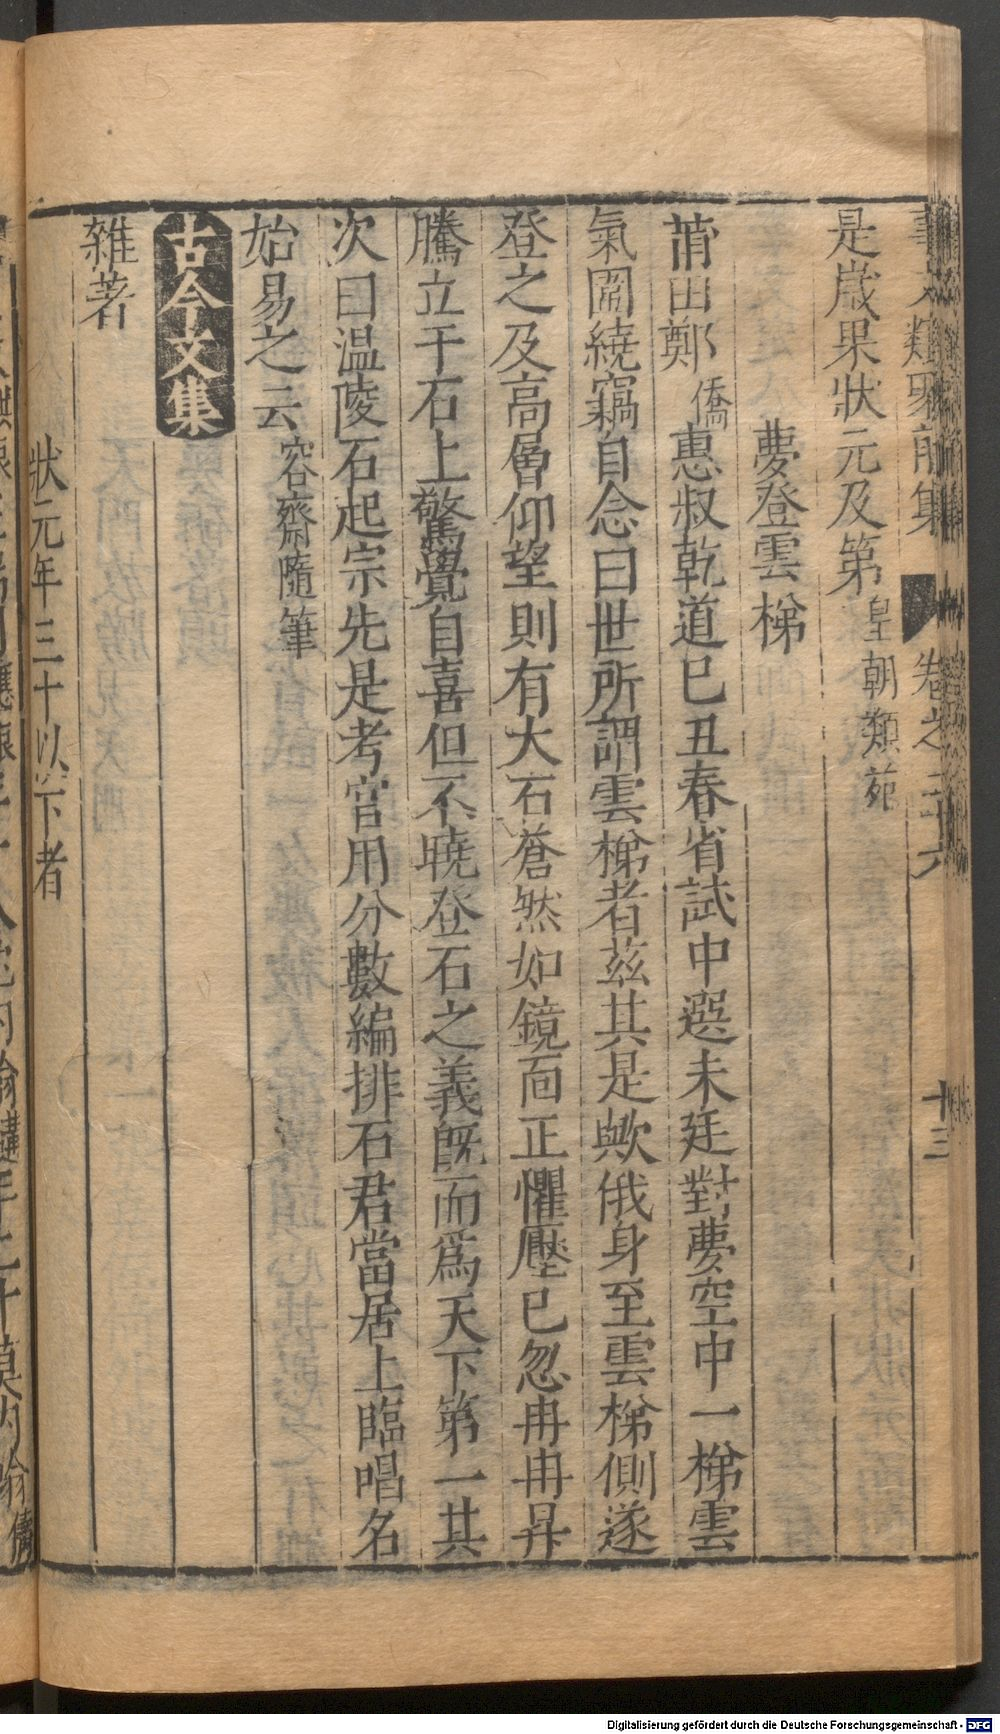 事文類聚前集 卷之二十六 十三
是歲果狀元及第皇朝類苑
夢登雲梯
莆田鄭僑惠叔乾道已丑春省試中選未廷對夢空中一梯雲
氣圍繞竊自念曰世所謂雲梯者茲其是歟俄身至雲梯側遂
登之及高層仰望則有大石蒼然如鏡面正懼壓已忽冉冉昇
騰立于石上驚覺自喜但不曉登石之義旣而爲天下第一其
次曰温陵石起宗先是考官用分數編排石君當居上臨唱名
始易之云容齋隨筆
古今文集
雜著
狀元年三十以下者
Digitalisierung gefördert durch die Deutsche Forschungsgemeinschaft - DFG